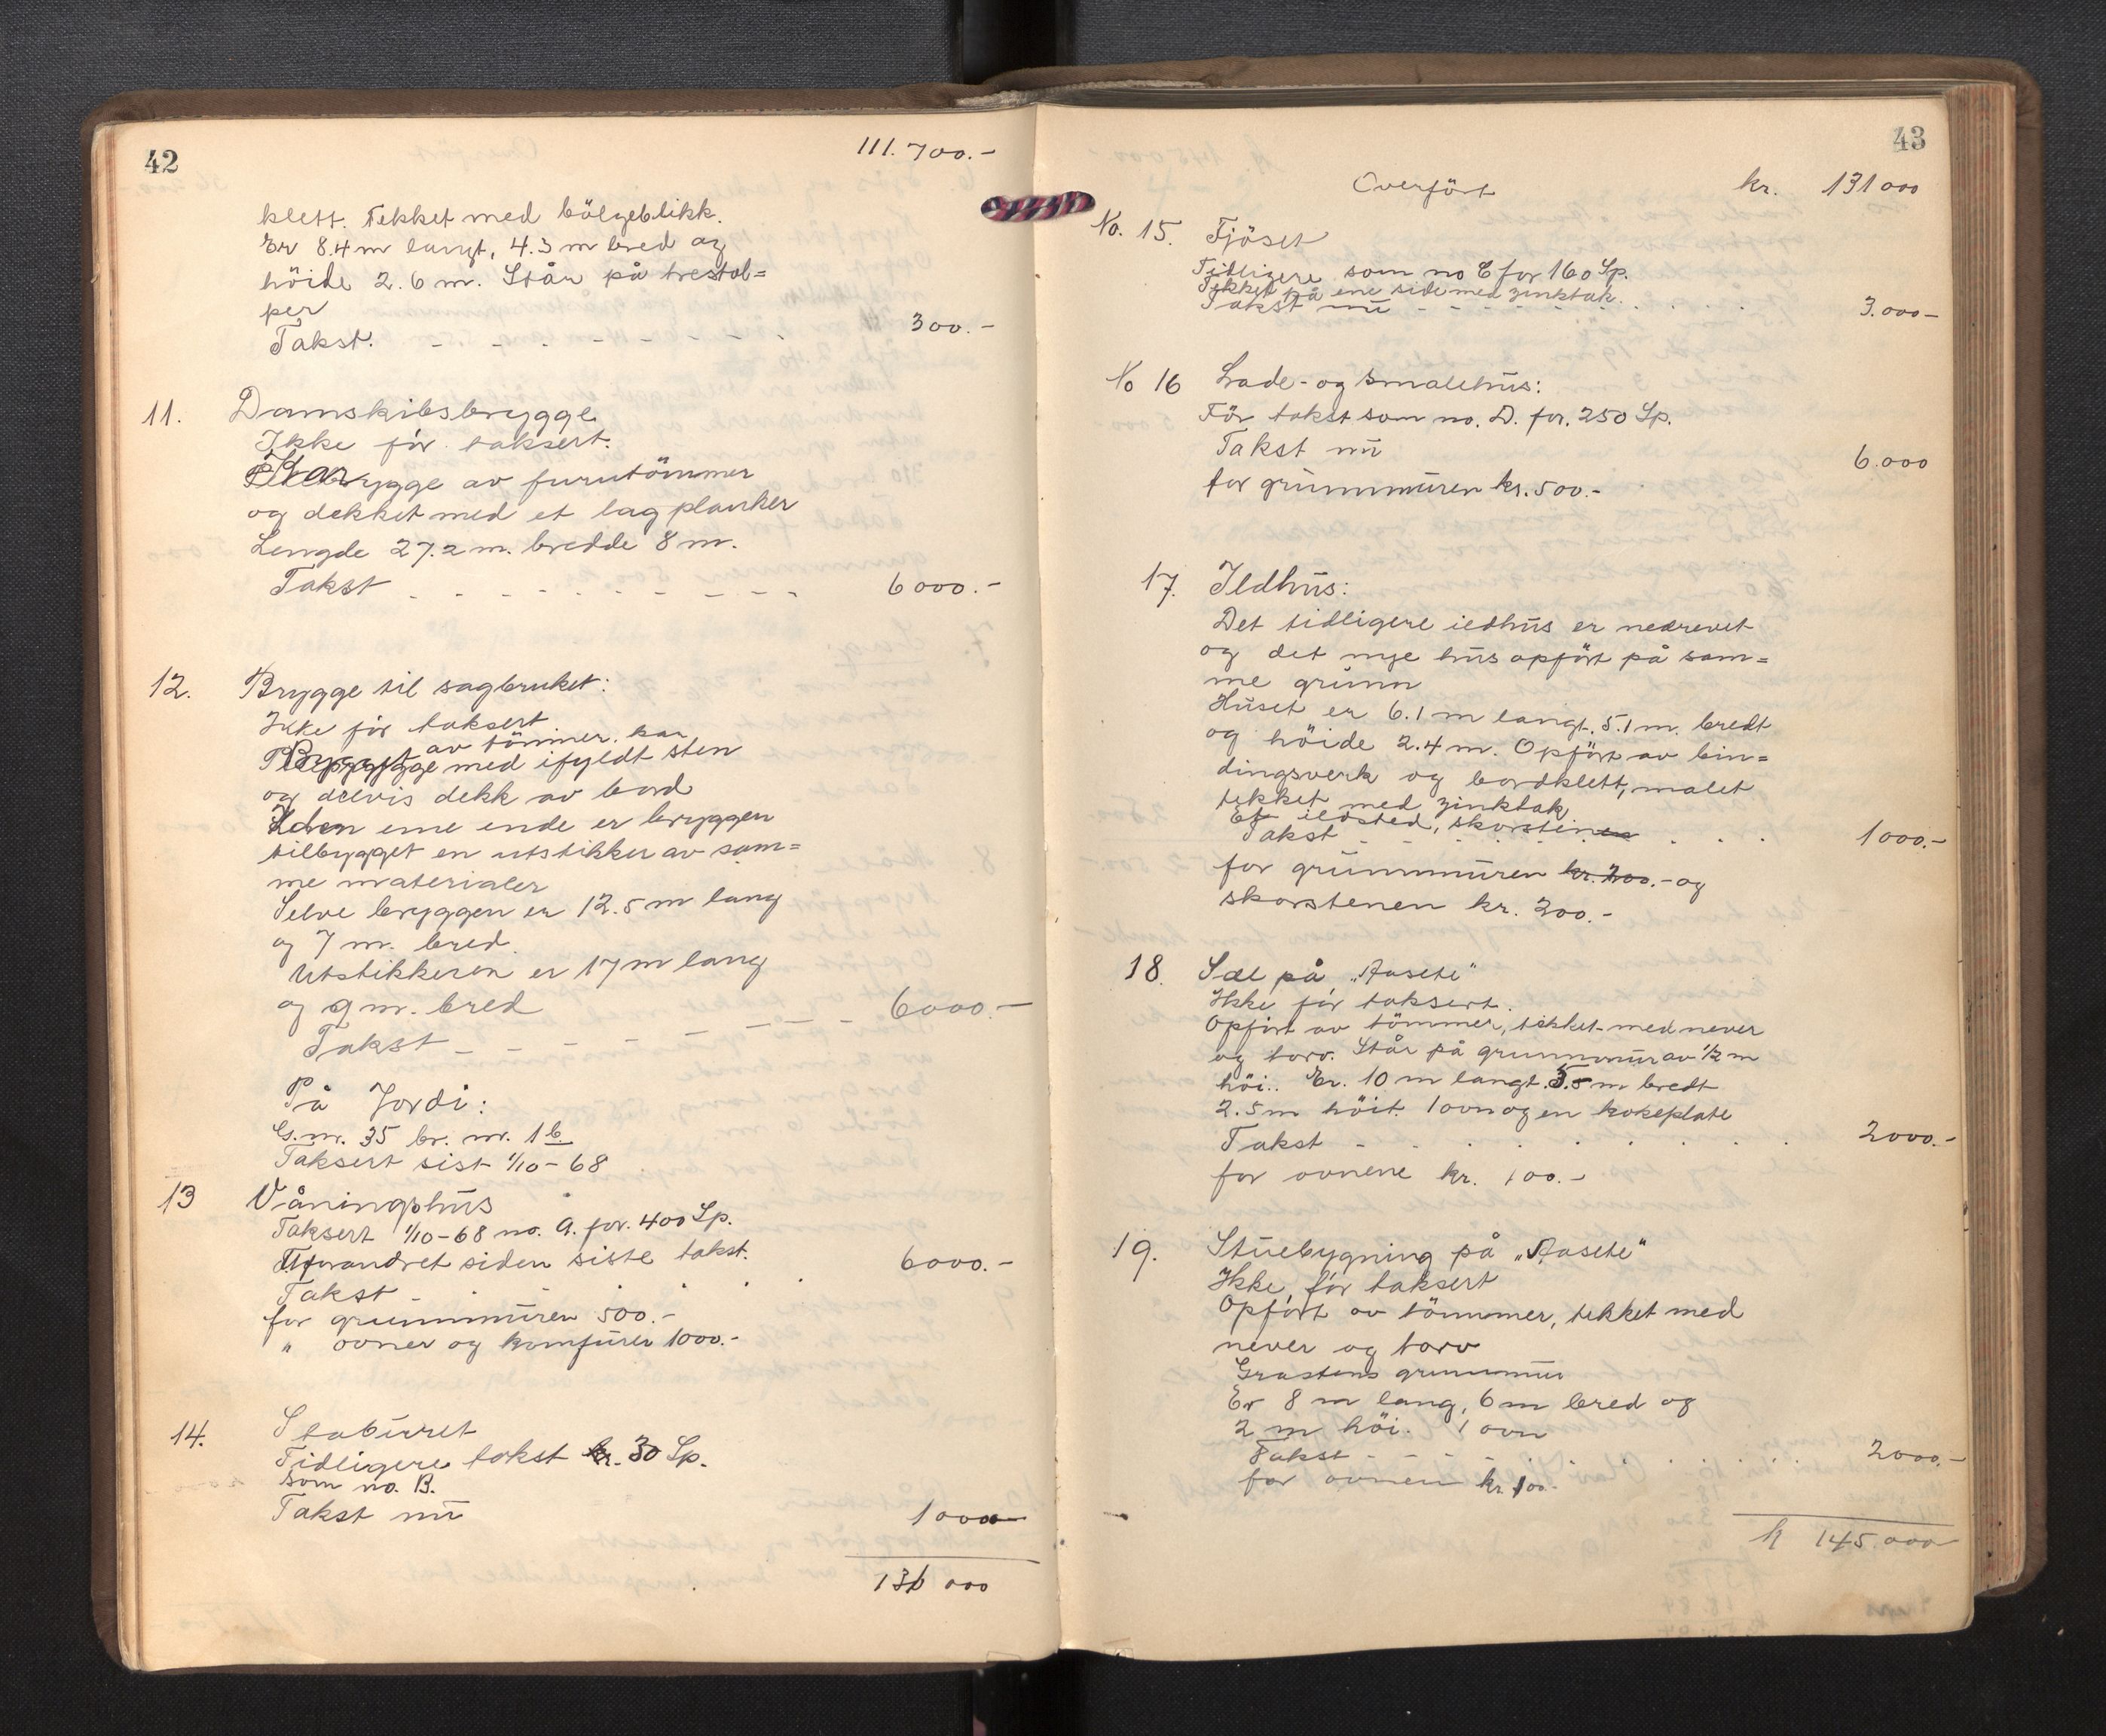 42
111.700.-
klett. Tekket med bölgeblikk.
Er 8.4 m langt, 4.3 m bred og
höide 2.6 m. Står på trestol=
per
Takst. 300.-
11. Damskibsbrygge
Ikke för taksert.
Karbrygge av furutömmer
og dekket med et lag planker
Lengde 27.2 m. bredde 8 m.
Takst 6000.-
12. Brygge til sagbruket:
Ikke för taksert
av tömmer. kar
med ifyldt sten
og delvis dekk av bord
I den ene ende er bryggen
tilbygget en utstikker av sam=
me materialer
Selve bryggen er 12.5 m lang
og 7 m. bred.
Utstikkeren er 17 m lang
og 9 m. bred 6000.-
Takst
På Jordi:
G.nr. 35 br. nr. 1 b.
Taksert sist 1/10-68
13 Våningshus
Taksert 1/10-68 no. A. for. 400 Sp.
Uforandret siden siste takst. 6000.-
Takst
for grunnmuren 500.-
" ovner og komfurer 1000.-
14. Staburet
Tidligere takst kr. 30 Sp.
som no. B.
Takst nu 1000
131 000
43
Overfört kr. 131 000
No. 15. Fjöset
Tidligere som no C for 160 Sp.
Tekket på ene side med zinktak.
Takst nu 3.000-
No 16 Lade- og Smalehus:
För takst som no. D. for. 250 Sp.
Takst nu 6.000
for grunnmuren kr. 500.-
17. Ildhus:
Det tidligere ildhus er nedrevet
og det nye hus opfört på sam=
me grunn
Huset er 6.1 m langt. 5.1 m. bredt
og höide 2.4 m. Opfört av bin=
dingsverk og bordklett, malet
tekket med zinktak
Et ildsted, skorstein
Takst 1000.-
for grunnmuren kr. 200.- og
skorstenen kr. 200.-
18. Sel på "Aasete"
Ikke för taksert.
Opfört av tömmer, tekket med never
og torv. Står på grunnmur av 1/2 m
höi.. Er. 10 m langt. 5.5 m bredt
2.5 m höit. 1 ovn og en kokeplate
Takst 2000.-
for ovnene kr. 100.-
19. Stuebygning på "Aasete"
Ikke för taksert
Opfört av tömmer, tekket med
never og torv
Grastens grunnmur
Er 8 m lang, 6 m bred og
2 m höi. 1 ovn
Takst 2000.-
for ovnen kr 100.-
kr 145.000